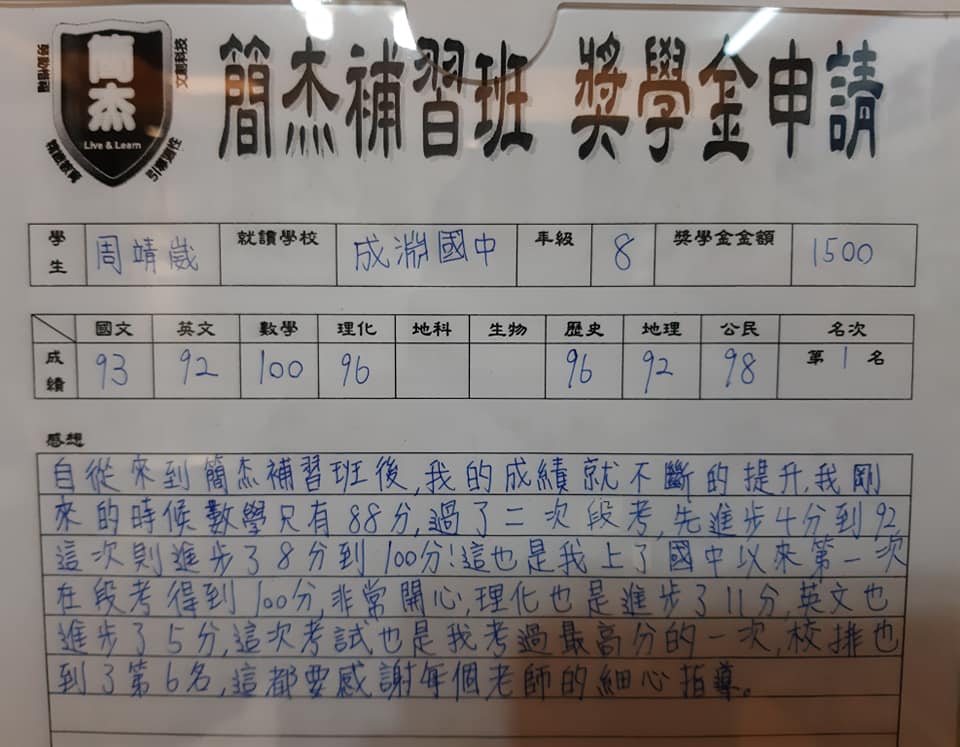 簡杰
Live & Learn
文創科技
引導適性
簡杰補習班 獎學金申請
學生 周靖崴 就讀學校 成淵國中 年級 8 獎學金金額 1500
國文 英文 數學 理化 地科 生物 歷史 地理 公民 名次
成績 93 92 100 96 96 92 98 第1名
感想
自從來到簡杰補習班後,我的成績就不斷的提升,我剛
來的時候數學只有88分,過了二次段考,先進步4分到92,
這次則進步了8分到100分!這也是我上了國中以來第一次
在段考得到100分,非常開心,理化也是進步了11分,英文也
進步了5分,這次考試也是我考過最高分的一次,校排也
到了第6名,這都要感謝每個老師的細心指導。